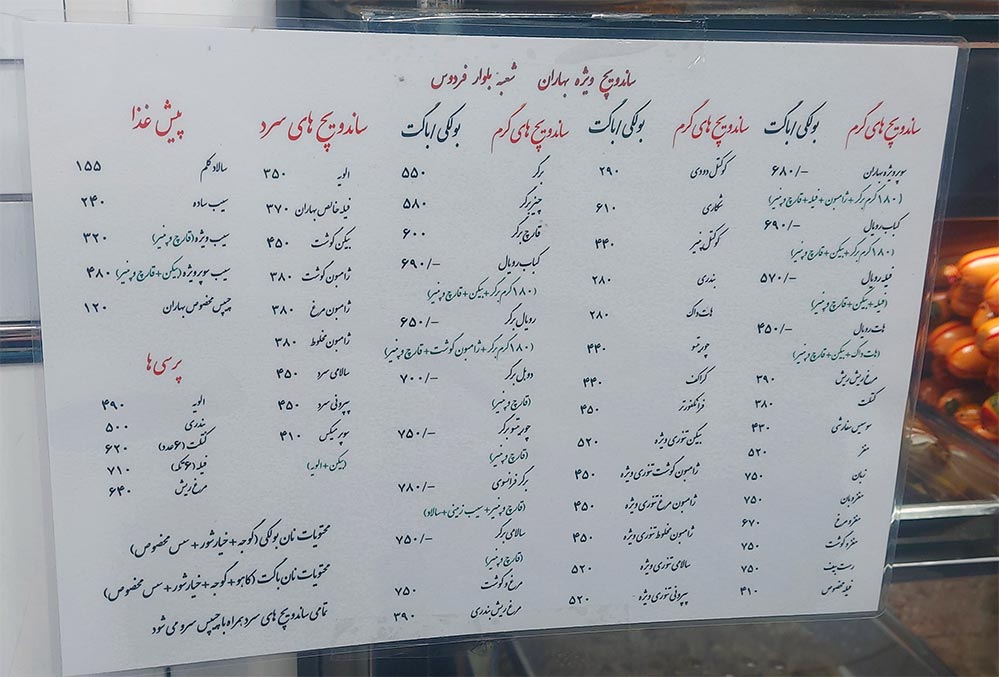 ساندویچ ویژه بهاران شعبه بلوار فردوس
ساندویچ های گرم بولکی/باگت
سوپرویژه بهاران ۶۸۰/-
(۱۸۰گرم برگر+ژامبون+فیله+قارچ و پنیر)
کباب رویال ۶۹۰/-
(۱۸۰گرم برگر+بیکن+قارچ و پنیر)
فیله رویال ۵۷۰/-
(فیله+بیکن+قارچ و پنیر)
هات رویال ۴۵۰/-
(هات داگ+بیکن+قارچ و پنیر)
مرغ ریش ریش ۳۹۰
کتلت ۳۸۰
سوسیس سفارشی ۴۳۰
مغز ۵۲۰
زبان ۷۵۰
مغز و زبان ۷۵۰
مغز و مرغ ۶۷۰
مغز و گوشت ۷۵۰
رست بیف ۷۵۰
فیله مخصوص ۴۱۰
ساندویچ های گرم بولکی/باگت
کوکتل دودی ۲۹۰
شکاری ۶۱۰
کوکتل پنیر ۴۴۰
بندری ۲۸۰
هات داگ ۲۸۰
چورتسو ۴۴۰
کراکف ۴۴۰
فرانکفورتر ۴۵۰
بیکن تنوری ویژه ۵۲۰
ژامبون گوشت تنوری ویژه ۴۵۰
ژامبون مرغ تنوری ویژه ۴۵۰
ژامبون مخلوط تنوری ویژه ۴۵۰
سالامی تنوری ویژه ۵۲۰
پپرونی تنوری ویژه ۵۲۰
ساندویچ های گرم بولکی/باگت
برگر ۵۵۰
چیزبرگر ۵۸۰
قارچ برگر ۶۰۰
کباب رویال ۶۹۰/-
(۱۸۰گرم برگر+بیکن+قارچ و پنیر)
رویال برگر ۶۵۰/-
(۱۸۰گرم برگر+ژامبون گوشت+قارچ و پنیر)
دوبل برگر ۷۰۰/-
(قارچ و پنیر)
چورتسو برگر ۷۵۰/-
(قارچ و پنیر)
برگر فرانسوی ۷۸۰/-
(قارچ و پنیر+سیب زمینی+سالاد)
سالامی برگر ۷۵۰/-
(قارچ و پنیر)
مرغ و گوشت ۷۵۰
مرغ ریش بندری ۳۹۰
ساندویچ های سرد
الویه ۳۵۰
فیله خالص بهاران ۳۷۰
بیکن گوشت ۴۵۰
ژامبون گوشت ۳۸۰
ژامبون مرغ ۳۸۰
ژامبون مخلوط ۳۸۰
سالامی سرد ۴۵۰
پپرونی سرد ۴۵۰
سوپر میکس ۴۱۰
(بیکن+الویه)
پیش غذا
سالاد کلم ۱۵۵
سیب ساده ۲۴۰
سیب ویژه (قارچ و پنیر) ۳۲۰
سیب سوپر ویژه (بیکن+قارچ و پنیر) ۴۸۰
چیپس مخصوص بهاران ۱۲۰
پرسی ها
الویه ۴۹۰
بندری ۵۰۰
کتلت (۶عدد) ۶۲۰
فیله (۶تکه) ۷۱۰
مرغ ریش ۶۴۰
محتویات نان بولکی (گوجه+خیارشور+سس مخصوص)
محتویات نان باگت (کاهو+گوجه+خیارشور+سس مخصوص)
تمامی ساندویچ های سرد همراه با چیپس سرو می شود